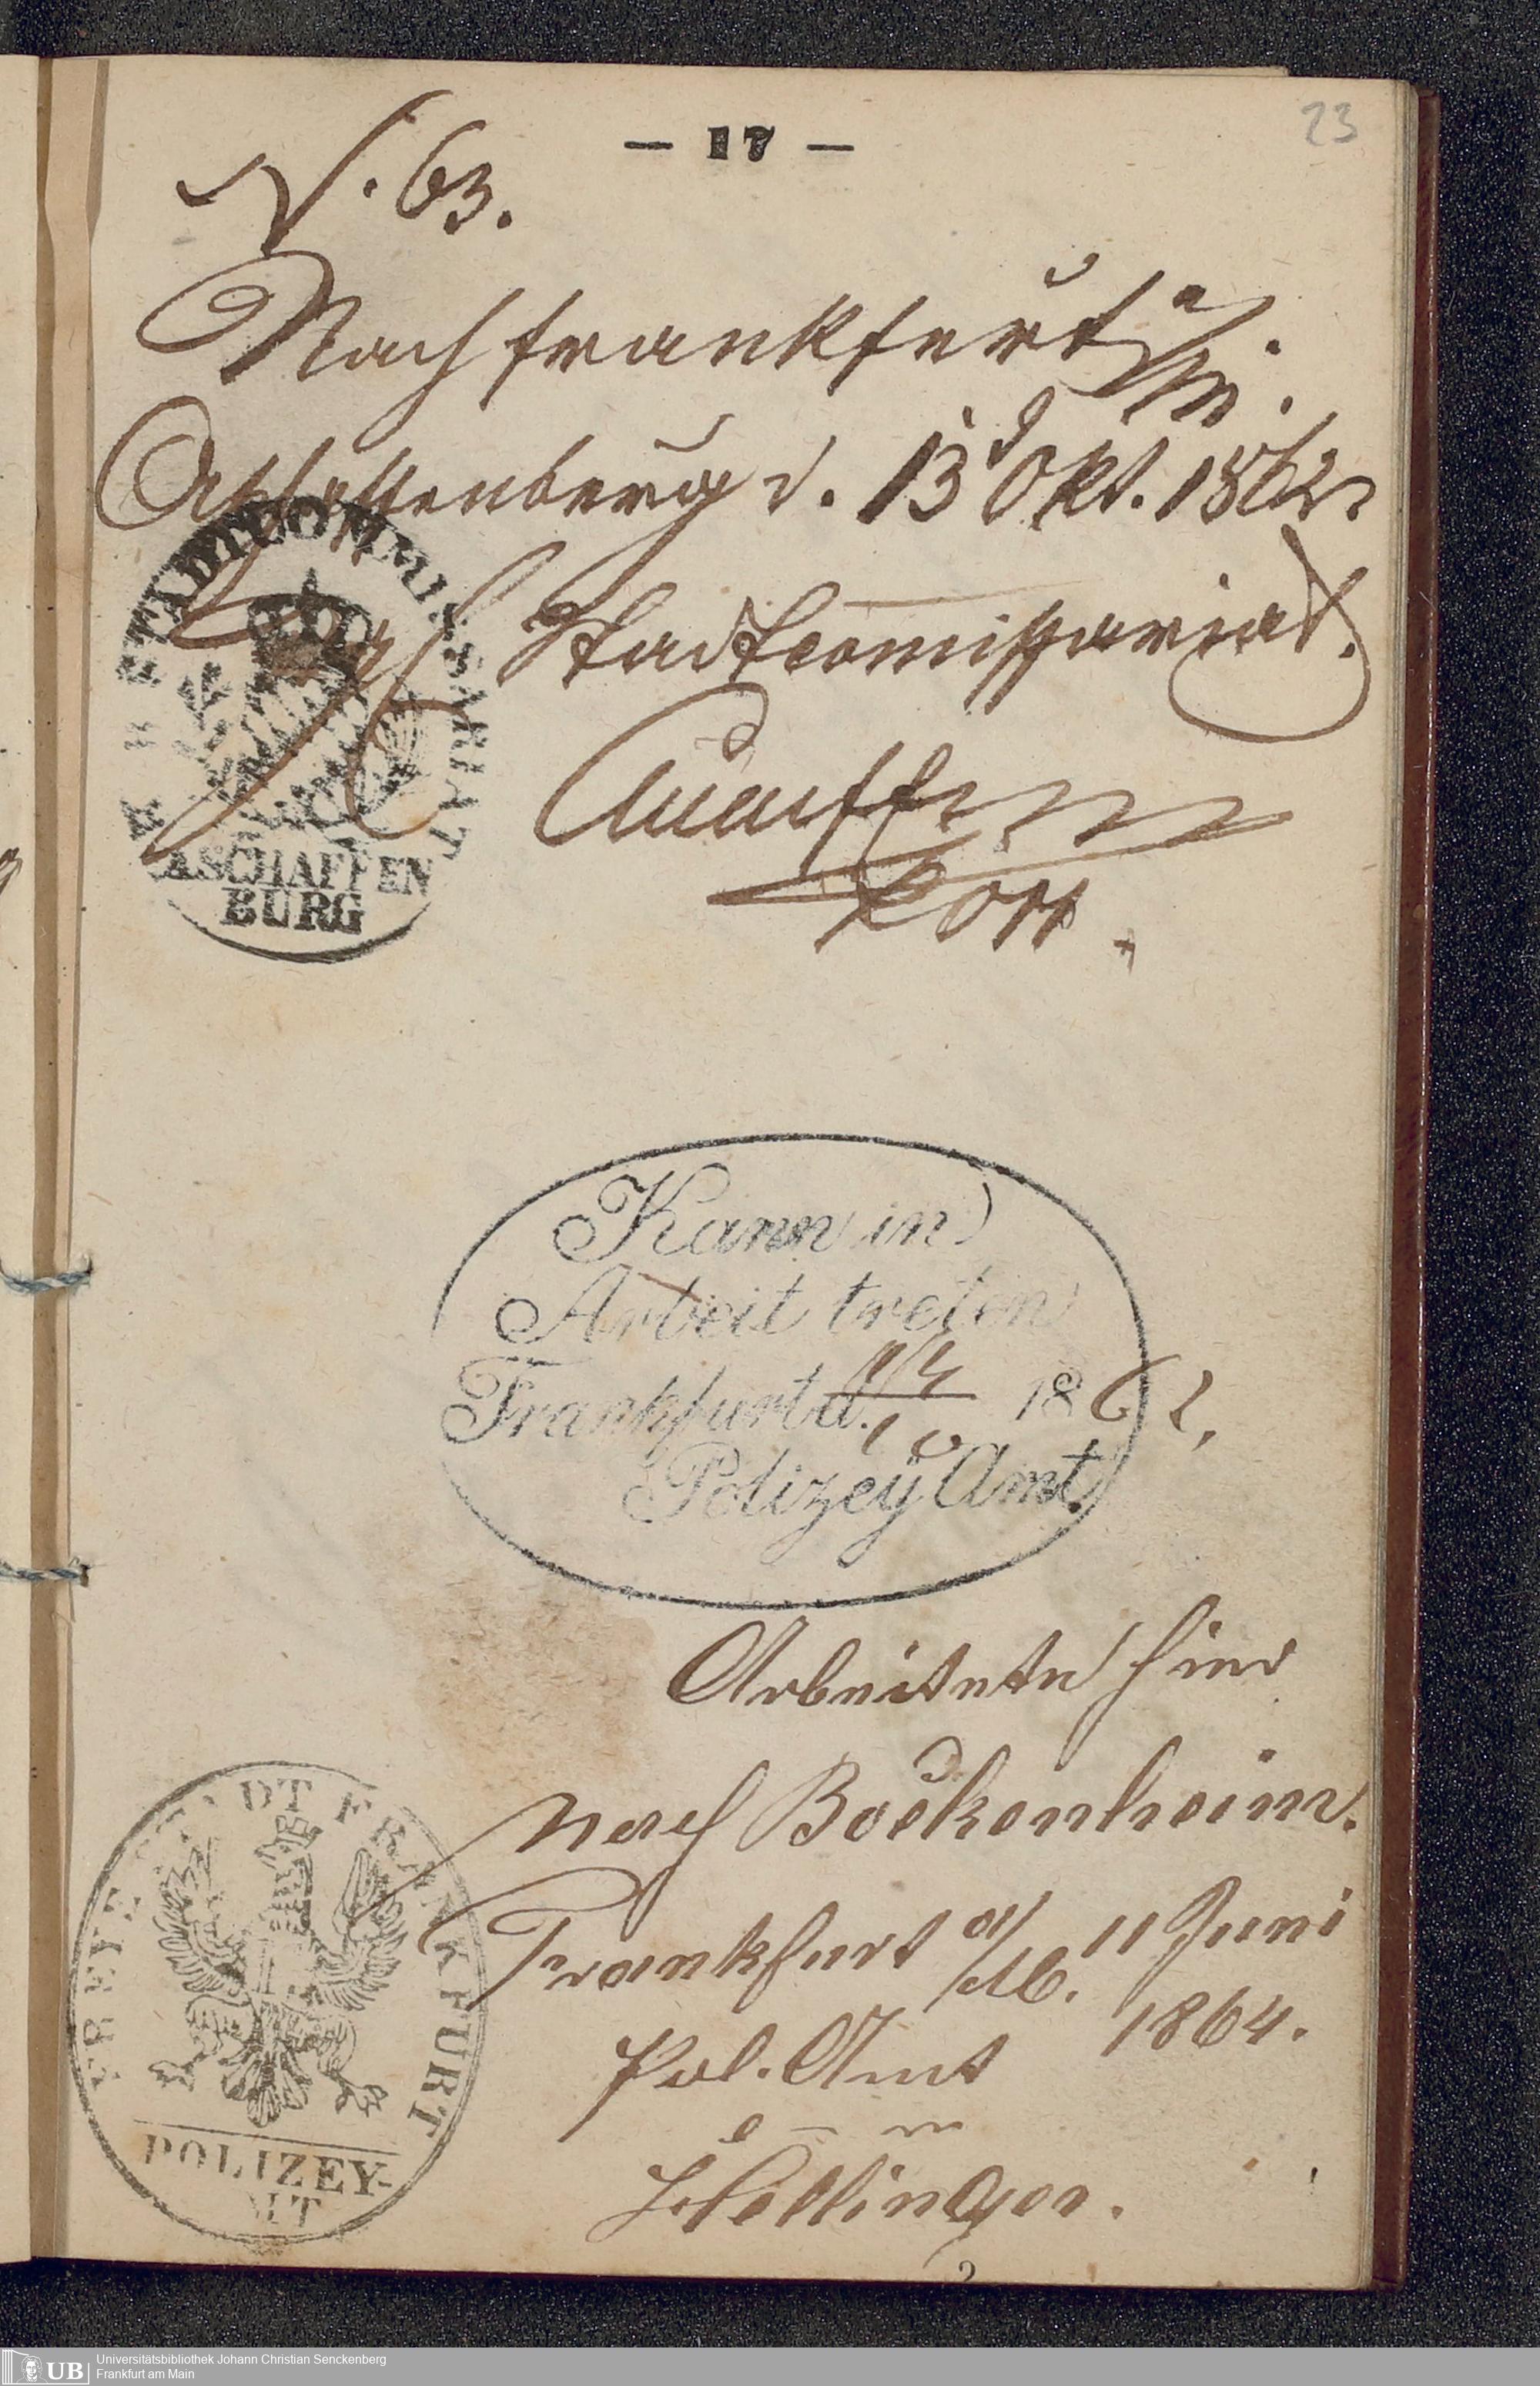 23
— 17 —
N. 63.
Nach Frankfurt a/M.
Aschaffenburg d. 13 Okt. 1862
Kgl. Stadtcomissariat.
K. B. STADTCOMMISSARIAT
ASCHAFFEN
BURG
Kann in
Arbeit treten
Frankfurt d. 14/10 1862.
Polizey Amt.
Arbeitete hier
nach Bockenheim.
Frankfurt a/M. 11 Juni
1864.
Pol. Amt
FREYE STADT FRANKFURT
POLIZEY-
AMT
UB
Universitätsbibliothek Johann Christian Senckenberg
Frankfurt am Main